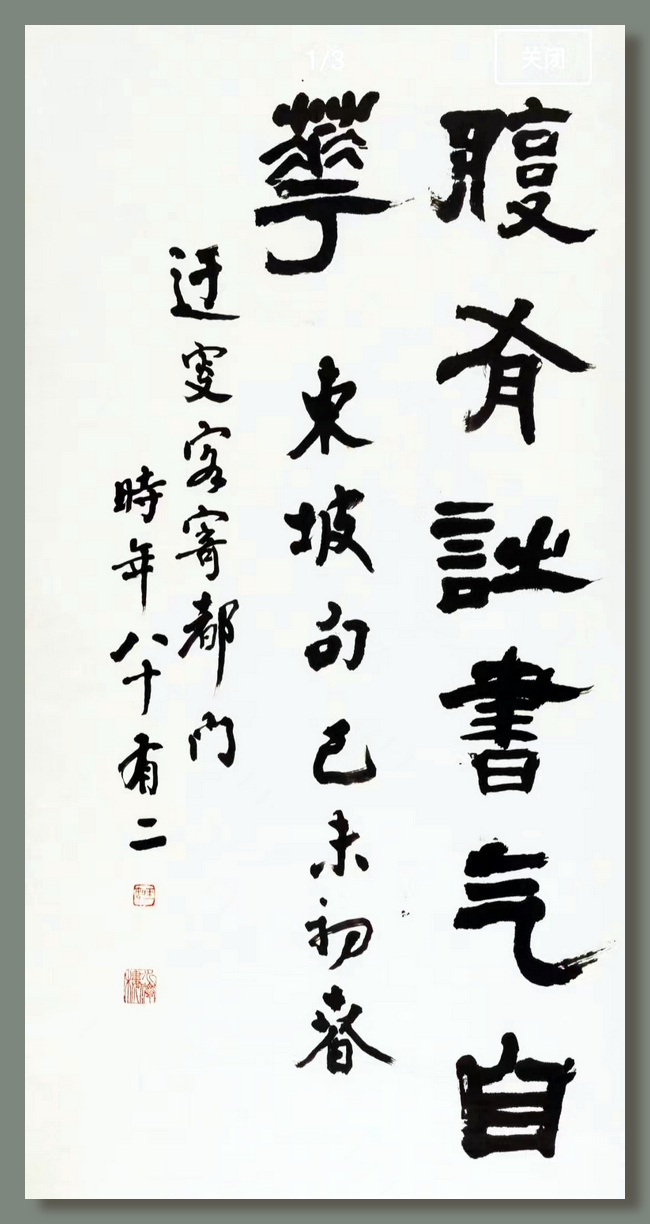 1/3
关闭
腹有詩書气自
華
東坡句己未初春
迂叟客寄都門
時年八十有二